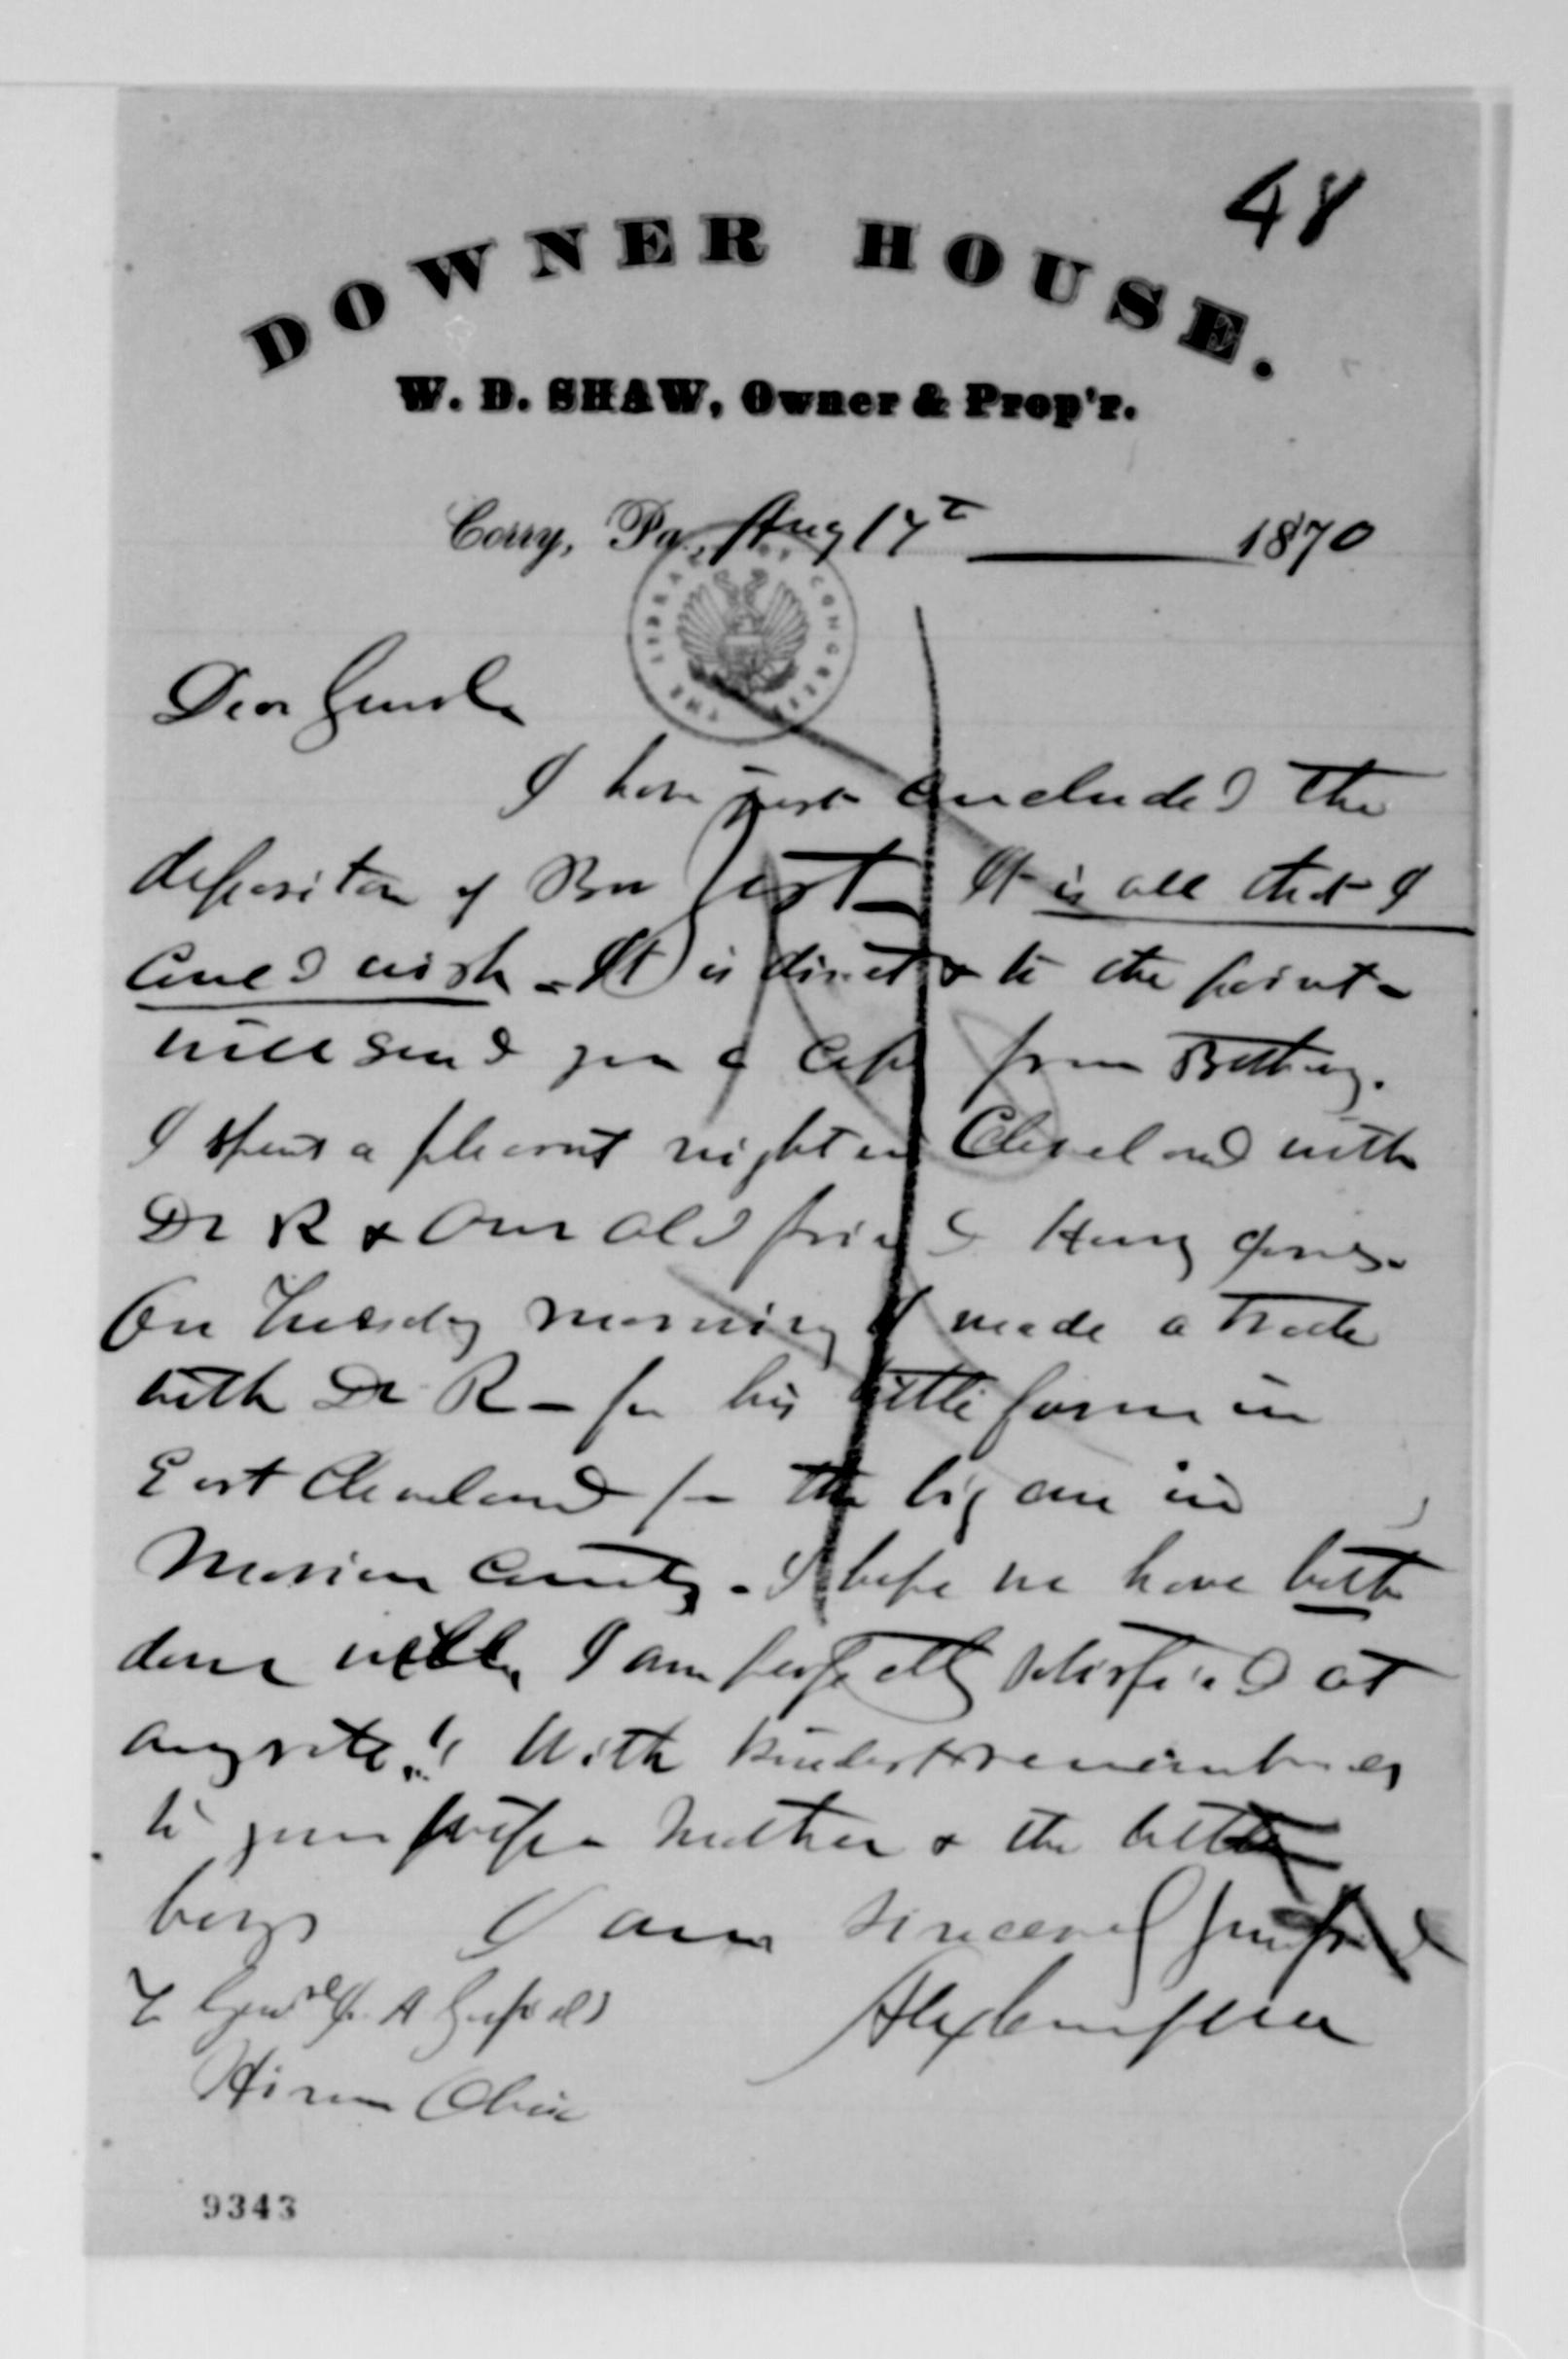 48
DOWNER HOUSE.
W. D. SHAW, Owner & Prop'r.
Corry, Pa., Aug 17t 1870
THE LIBRARY OF CONGRESS
Dear General
I have just concluded the
deposition of It is all that I
could wish - It is direct & to the point -
will send you a copy from
I spent a pleasant night in Cleveland with
Dr R & our old friend Henry Jones.
On Tuesday morning I made a trade
with Dr R - for his little farm in
East Cleveland for the big one in
Marion County - I hope we have both
done well, I am perfectly satisfied at
any rate.!! With kindest remembrances
to your wife mother & the little
boys I am sincerely your friend
To Genl J. A Garfield
Alex Campbell
Hiram Ohio
9343